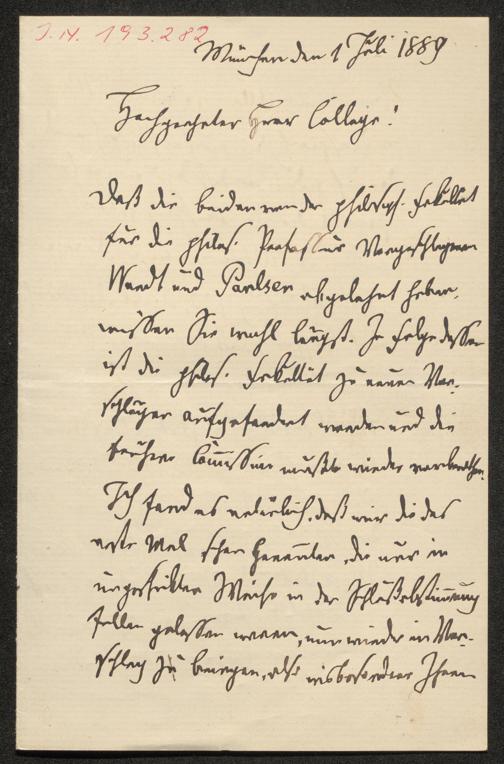 J.N. 193.282
München den 1 Juli 1889
Hochgeehrter Herr College!
Daß die beiden von der philosoph. Fakultät
für die philos. Professur Vorgeschlagenen
Wundt und Paulsen abgelehnt haben,
wissen Sie wohl längst. In Folge dessen
ist die philos. Fakultät zu neuen Vor-
schlägen aufgefordert worden und die
frühere Commission mußte wieder vorberathen.
Ich fand es natürlich, daß wir die das
erste Mal schon Genannten, die nur in
ungeschickter Weise in der Schlußabstimmung
fallen gelassen waren, nun wieder in Vor-
schlag zu bringen, also insbesondere Ihren